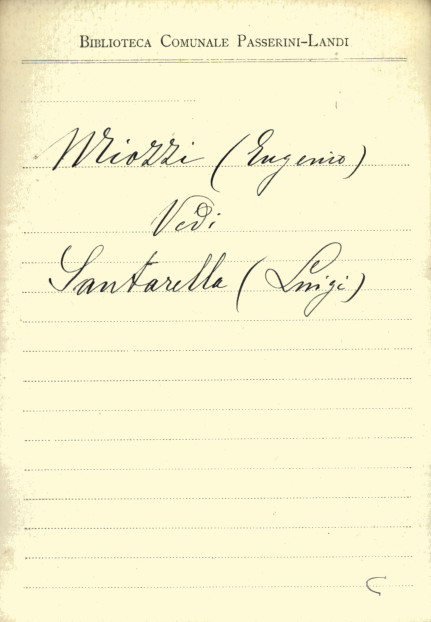 BIBLIOTECA COMUNALE PASSERINI-LANDI
Miozzi (Eugenio)
Vedi
Santarella (Luigi)